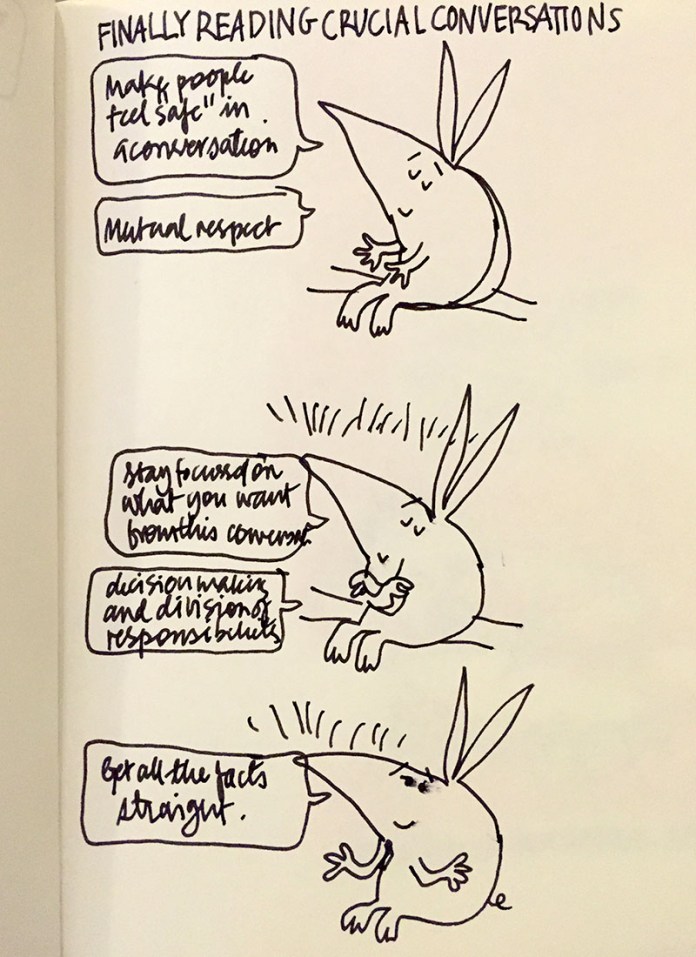 FINALLY READING CRUCIAL CONVERSATIONS
Make people
feel "safe" in
a conversation
Mutual respect
stay focused on
what you want
from this conversat.
decision making
and division of
responsibilities
Get all the facts
straight.